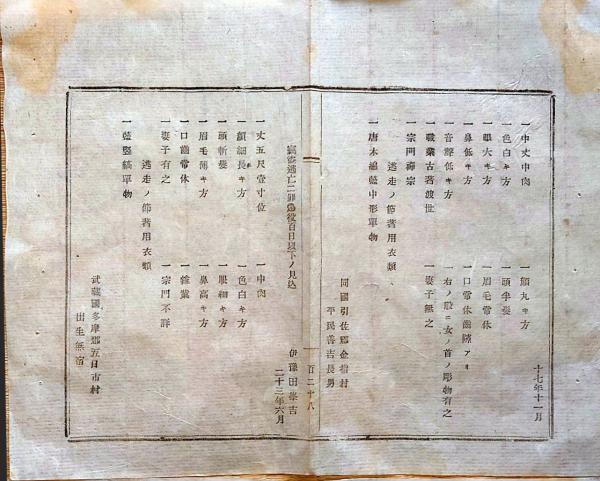 十七年十一月
一中丈中肉 一顔丸キ方
一色白キ方 一頭半髪
一眼大キ方 一眉毛常体
一鼻低キ方 一口常体歯隙アリ
一音聲低キ方 一右ノ股ニ女ノ首ノ彫物有之
一職業古著渡世 一妻子無之
一宗門禪宗
逃走ノ節著用衣類
一唐木綿藍中形單物
同國引佐郡金指村
平民善吉長男
百二十八
伊豫田峯吉
二十三年六月
竊盗逃亡二罪懲役百日以下ノ見込
一丈五尺壹寸位 一中肉
一顔細長キ方 一色白キ方
一頭斬髪 一眼細キ方
一眉毛薄キ方 一鼻高キ方
一口齒常体 一雜業
一妻子有之 一宗門不詳
逃走ノ節著用衣類
一藍竪縞單物
武藏國多摩郡五日市村
出生無宿